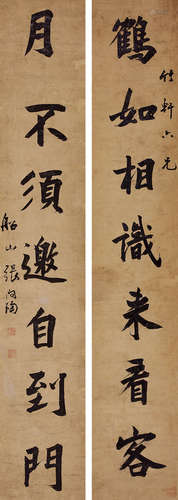 鶴如相識来看客
竹軒六兄
月不須邀自到門
船山張問陶